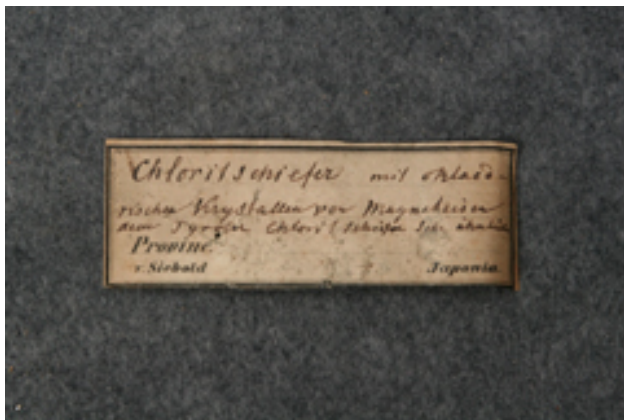 Chloritschiefer mit oktaëd-
rischen Krystallen von Magneteisen
dem Tyroler Chloritschiefer sehr ähnlich
Provinc.
v. Siebold Japonia.